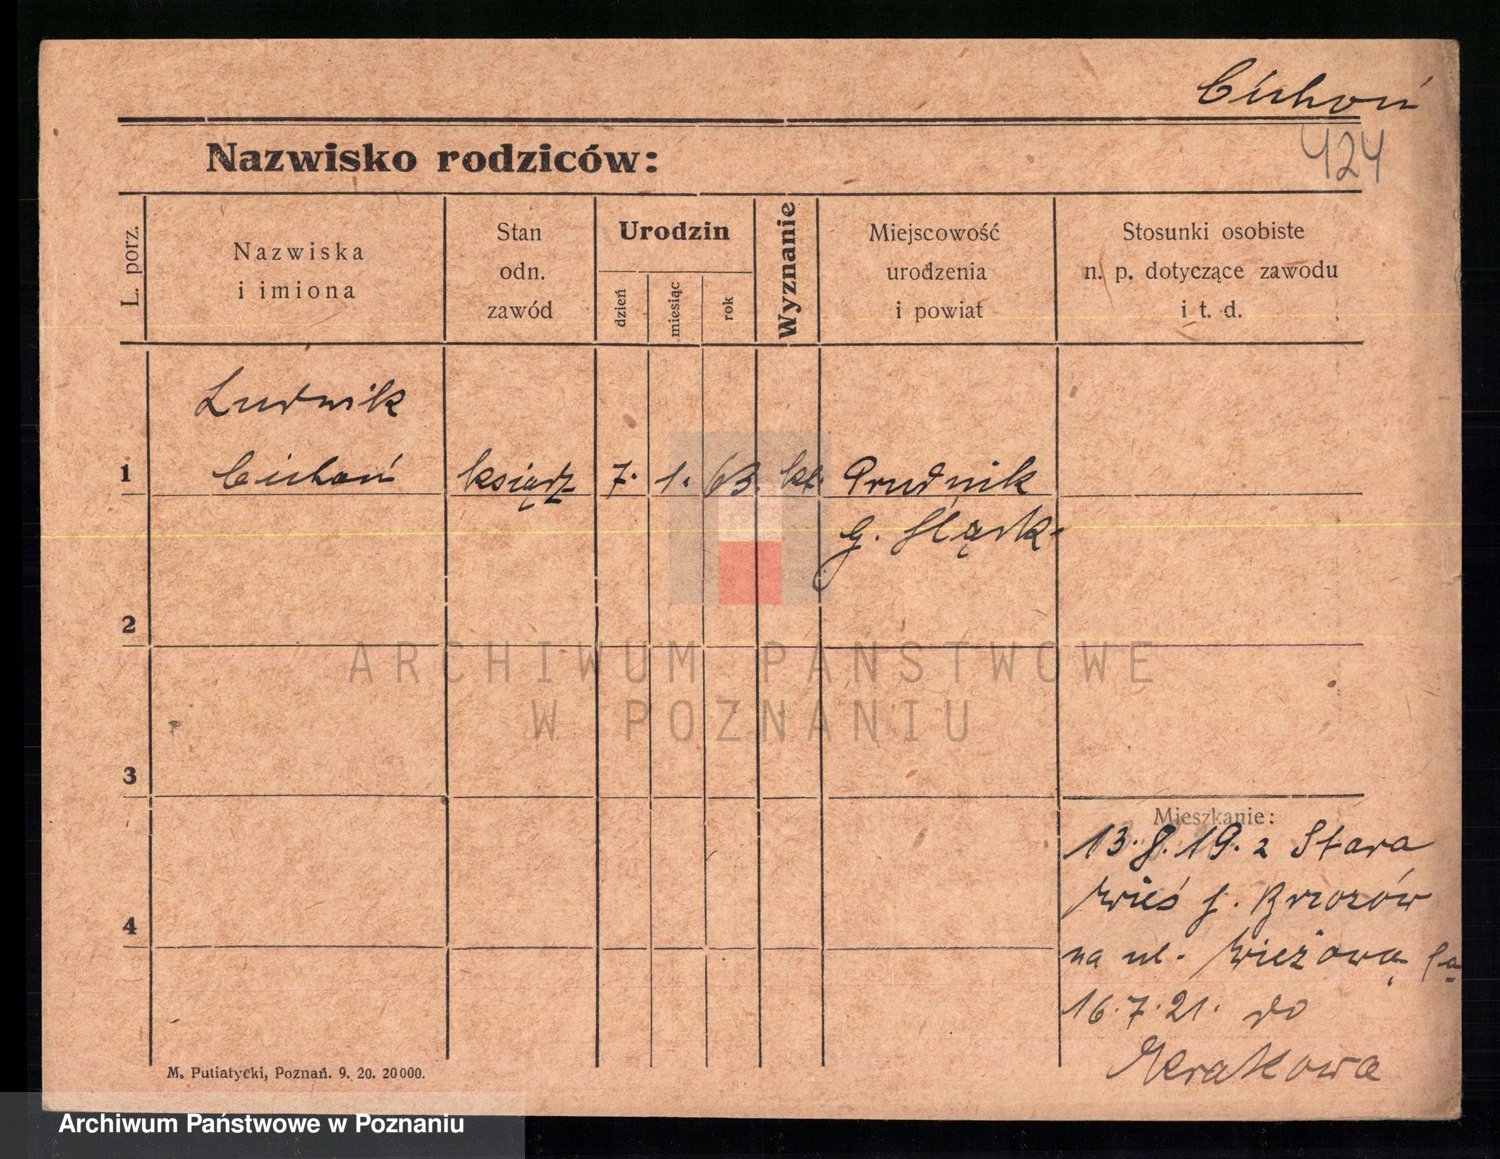 Cichoń
424
Nazwisko rodziców:
L. porz.
Nazwiska
i imiona
Stan
odn.
zawód
Urodzin
dzień
miesiąc
rok
Wyznanie
Miejscowość
urodzenia
i powiat
Stosunki osobiste
n. p. dotyczące zawodu
i t. d.
Ludwik
1 Cichoń ksiądz 7. 1. 63. kt. Prudnik
G. Śląsk.
2
3
4
Mieszkanie:
13.8.19. z Stara
Wieś p. Brzozów
na ul. Wieżową
16.7.21. do
Krakowa
M. Putiatycki, Poznań. 9. 20. 20000.
ARCHIWUM PAŃSTWOWE
W POZNANIU
Archiwum Państwowe w Poznaniu